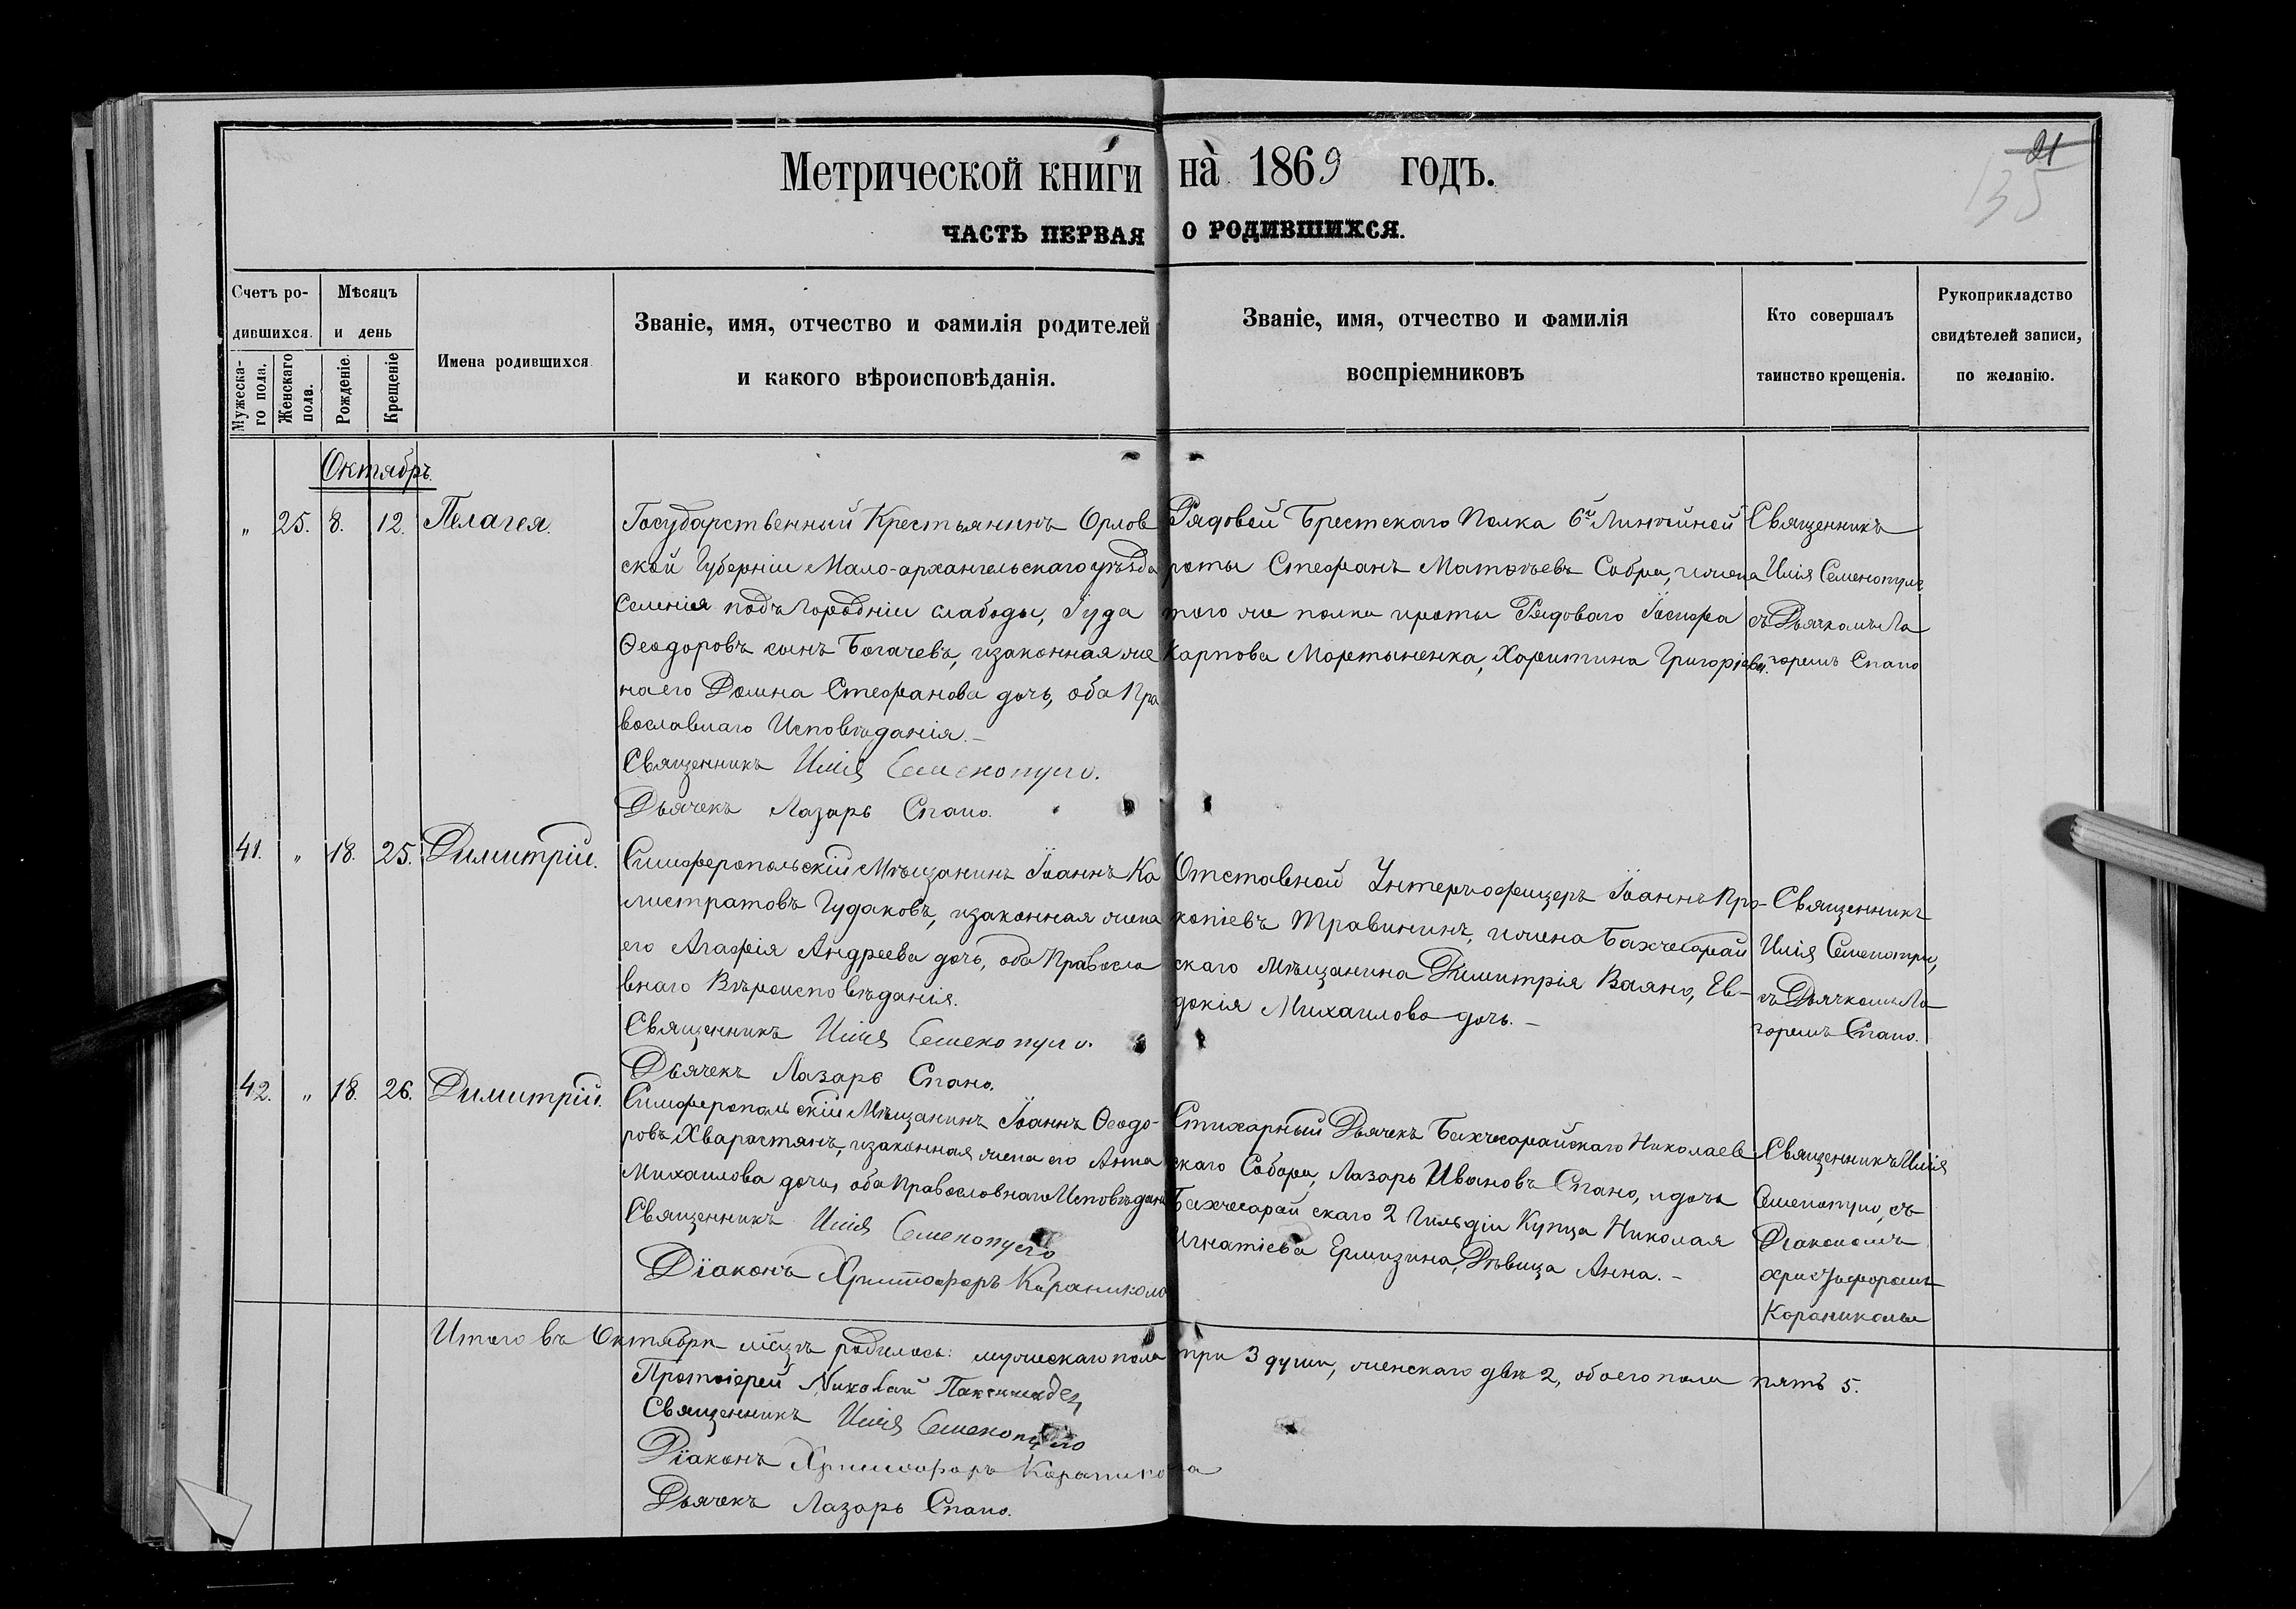 21
135
Метрической книги на 1869 годъ.
ЧАСТЬ ПЕРВАЯ О РОДИВШИХСЯ.
Счетъ ро-
дившихся.
Мужеска-
го пола.
Женскаго
пола.
Мѣсяцъ
и день
Рожденіе.
Крещеніе
Имена родившихся
Званіе, имя, отчество и фамилія родителей
и какого вѣроисповѣданія.
Званіе, имя, отчество и фамилія
воспріемниковъ
Кто совершалъ
таинство крещенія.
Рукоприкладство
свидѣтелей записи,
по желанію.
Октябрь.
„ 25. 8. 12. Пелагея.
Государственный Крестьянинъ Орлов
ской Губерніи Мало-архангельскаго уѣзда
Селенія подъ Городніи слабоды, Іуда
Ѳеодоровъ сынъ Богачевъ, и законная же
на его Домна Стефанова дочь, оба Пра
вославнаго Исповѣданія.–
Священникъ Илія
Дьячекъ Лазарь Спано.
Рядовой Брестскаго Полка 6й Линейной
роты Стефанъ Матвѣевъ и жена
того же полка и роты Рядоваго Іосифа
Карпова Мартыненка, Харитина Григоріева.
Священникъ
Илія
съ Дьячкомъ Ла
заремъ Спано
41. „ 18. 25. Димитрій.
Симферопольскій Мѣщанинъ Іоаннъ Ка
листратовъ Гудаковъ, и законная жена
его Агафія Андреева дочь, оба Правосла
внаго Вѣроисповѣданія.
Священникъ Илія
Дьячекъ Лазарь Спано.
Отставной Унтеръ-офицеръ Іоаннъ Про-
копіевъ Травининъ, и жена Бахчесарай
скаго Мѣщанина Димитрія Ваяно, Ев-
докія Михаилова дочь.–
Священникъ
Илія
съ Дьячкомъ Ла
заремъ Спано.
42. „ 18. 26. Димитрій.
Симферопольскій Мѣщанинъ Іоаннъ Ѳеодо-
ровъ Хваростянъ, и законная жена его Анна
Михаилова дочь, оба Православнаго Исповѣдан
Священникъ Илія
Діаконъ Христофоръ Караникола
Стихарный Дьячекъ Бахчесарайскаго Николаев
скаго Собора, Лазарь Ивановъ Спано, и дочь
Бахчесарайскаго 2 Гильдіи Купца Николая
Игнатіева Ермизина, Дѣвица Анна.–
Священникъ Илія
съ
Діакономъ
Христофоромъ
Караникола
Итого въ Октябрѣ мѣцѣ родилось: мужескаго пола три 3 души, женскаго двѣ 2, обоего пола пять 5.
Протоіерей Николай
Священникъ Илія
Діаконъ Христофоръ Караникола
Дьячекъ Лазарь Спано.